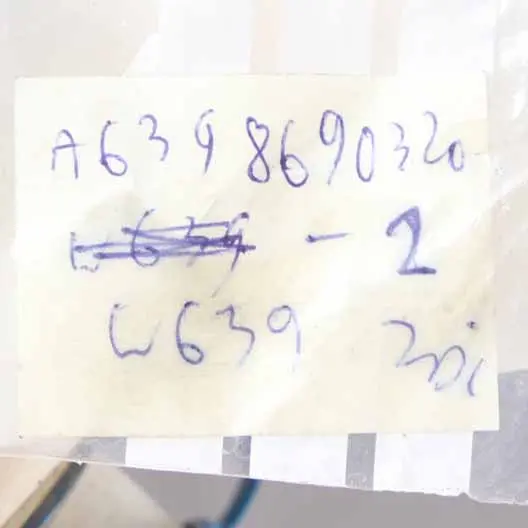 A639 8690320
- 2
W639